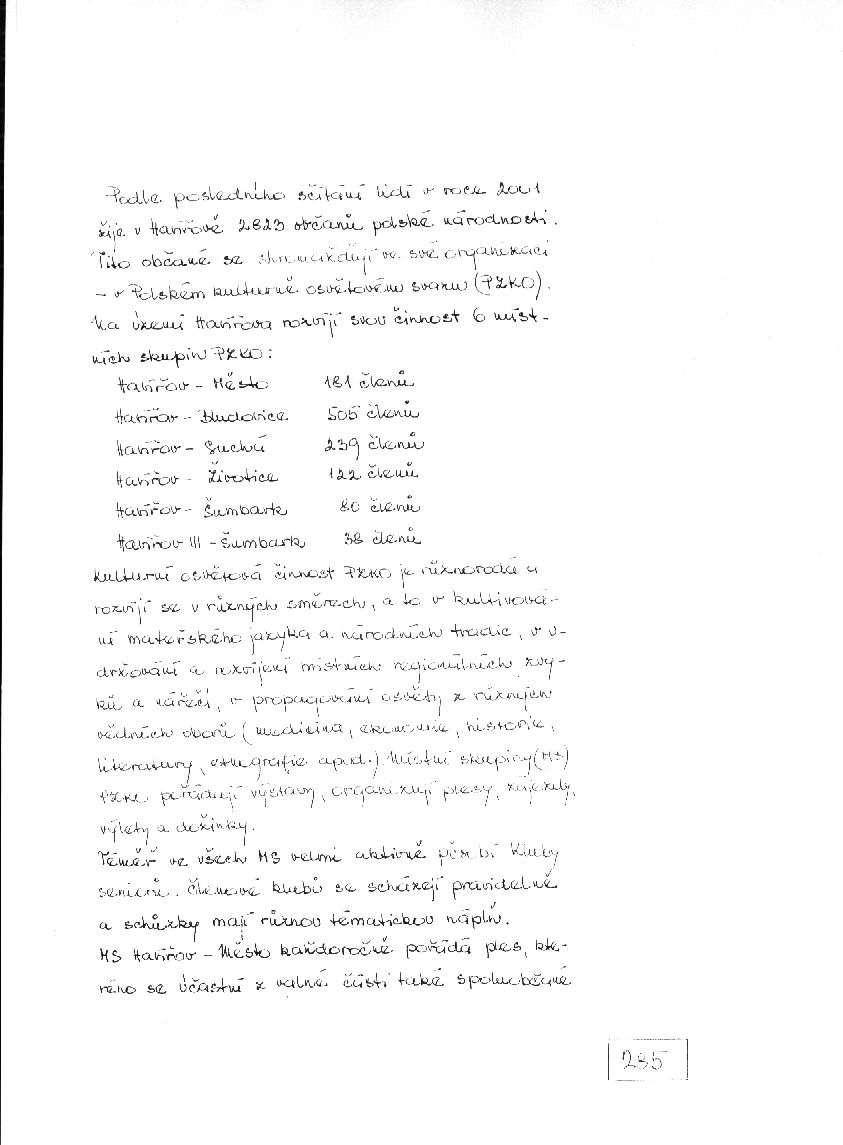 Podle posledního sčítání lidí v roce 2001
žije v Havířově 2823 občanů polské národnosti.
Tito občané se shromažďují ve své organizaci
– v Polském kulturně osvětovém svazu (PZKO).
Na území Havířova rozvíjí svou činnost 6 míst-
ních skupin PZKO:
Havířov – Město 181 členů
Havířov – Bludovice 505 členů
Havířov – Suchá 239 členů
Havířov – Životice 122 členů
Havířov – Šumbark 80 členů
Havířov III – Šumbark 38 členů
Kulturní osvětová činnost PZKO je různorodá a
rozvíjí se v různých směrech, a to v kultivová-
ní mateřského jazyka a národních tradic, v u-
držování a rozvíjení místních regionálních zvy-
ků a nářečí, v propagování osvěty z různých
vědních oborů (medicina, ekonomie, historie,
literatury, etnografie apod.) Místní skupiny (MS)
PZKO pořádají výstavy, organizují plesy, zájezdy,
výlety a dožinky.
Téměř ve všech MS velmi aktivně působí Kluby
seniorů. Členové klubů se scházejí pravidelně
a schůzky mají různou tématickou náplň.
MS Havířov – Město každoročně pořádá ples, kte-
rého se účastní z valné části také spoluobčané
235